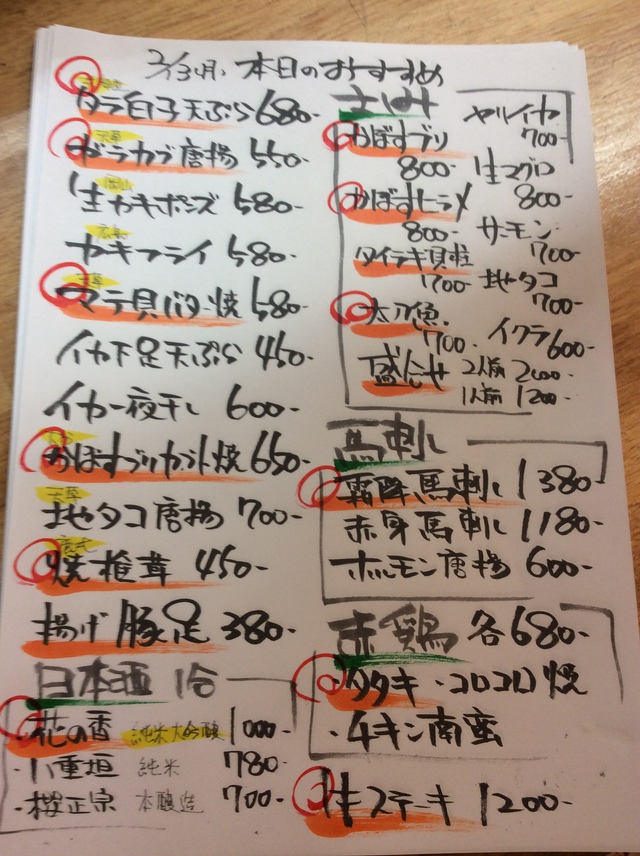 2/3(月) 本日のおすすめ
タラ白子天ぷら 680-
天草
ガラカブ唐揚 550-
岡山
生カキポンズ 580-
カキフライ 580-
天草
マテ貝バター焼 580-
イカ下足天ぷら 450-
イカ一夜干し 600-
かぼすブリカマ焼 650-
天草
地タコ唐揚 700-
焼椎茸 450-
揚げ豚足 380-
日本酒 1合
花の香 純米大吟醸 1000-
・八重垣 純米 780-
・桜正宗 本醸造 700-
さしみ
ヤリイカ 700-
かぼすブリ 800-
生マグロ 800-
かぼすヒラメ 800-
サーモン 700-
タイラギ貝柱 1700-
地タコ 700-
太刀魚 1700-
イクラ 600-
盛合せ 2人前 2000-
1人前 1200-
馬刺し
霜降馬刺し 1380-
赤身馬刺し 1180-
ホルモン唐揚 600-
赤鶏 各680-
・タタキ ・コロコロ焼
・チキン南蛮
牛ステーキ 1200-